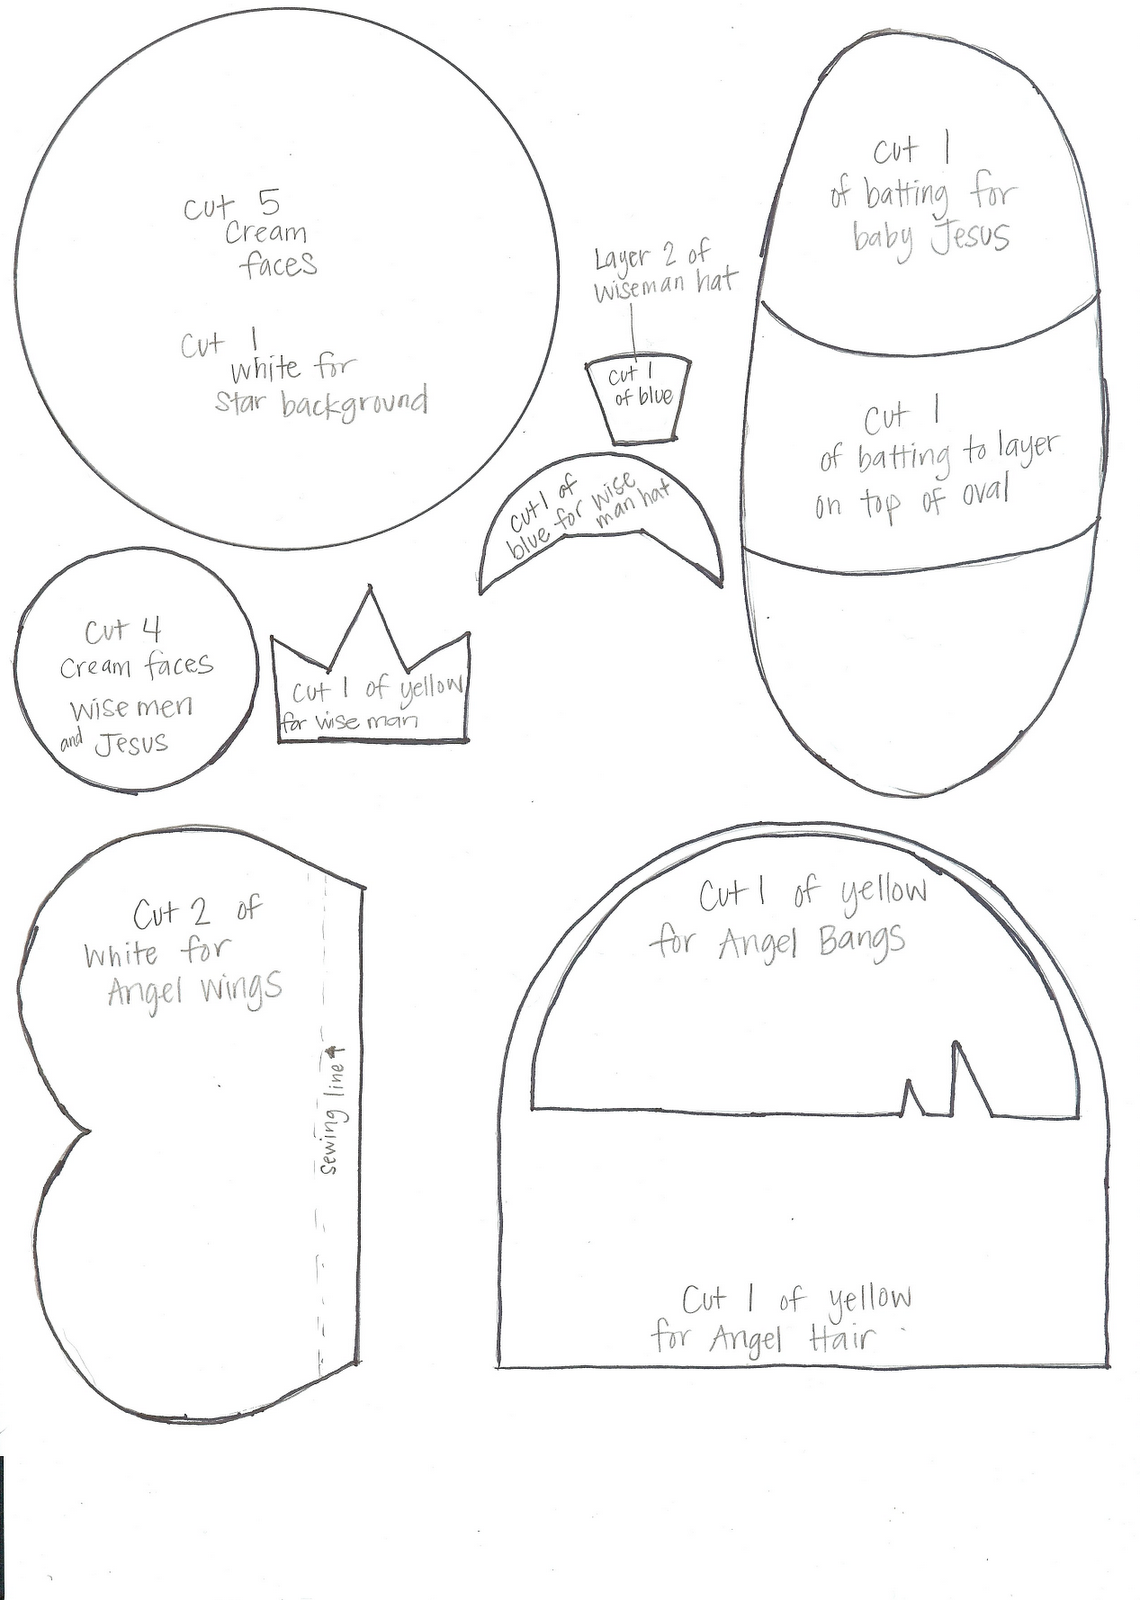 Cut 5
Cream
faces
Cut 1
White for
Star background
Layer 2 of
Wiseman hat
Cut 1
of blue
Cut 1 of
blue for wise
man hat
Cut 1
of batting for
baby Jesus
Cut 1
of batting to layer
on top of oval
Cut 4
Cream faces
Wise men
and Jesus
Cut 1 of yellow
for wise man
Cut 2 of
White for
Angel Wings
Sewing line
Cut 1 of yellow
for Angel Bangs
Cut 1 of yellow
for Angel Hair